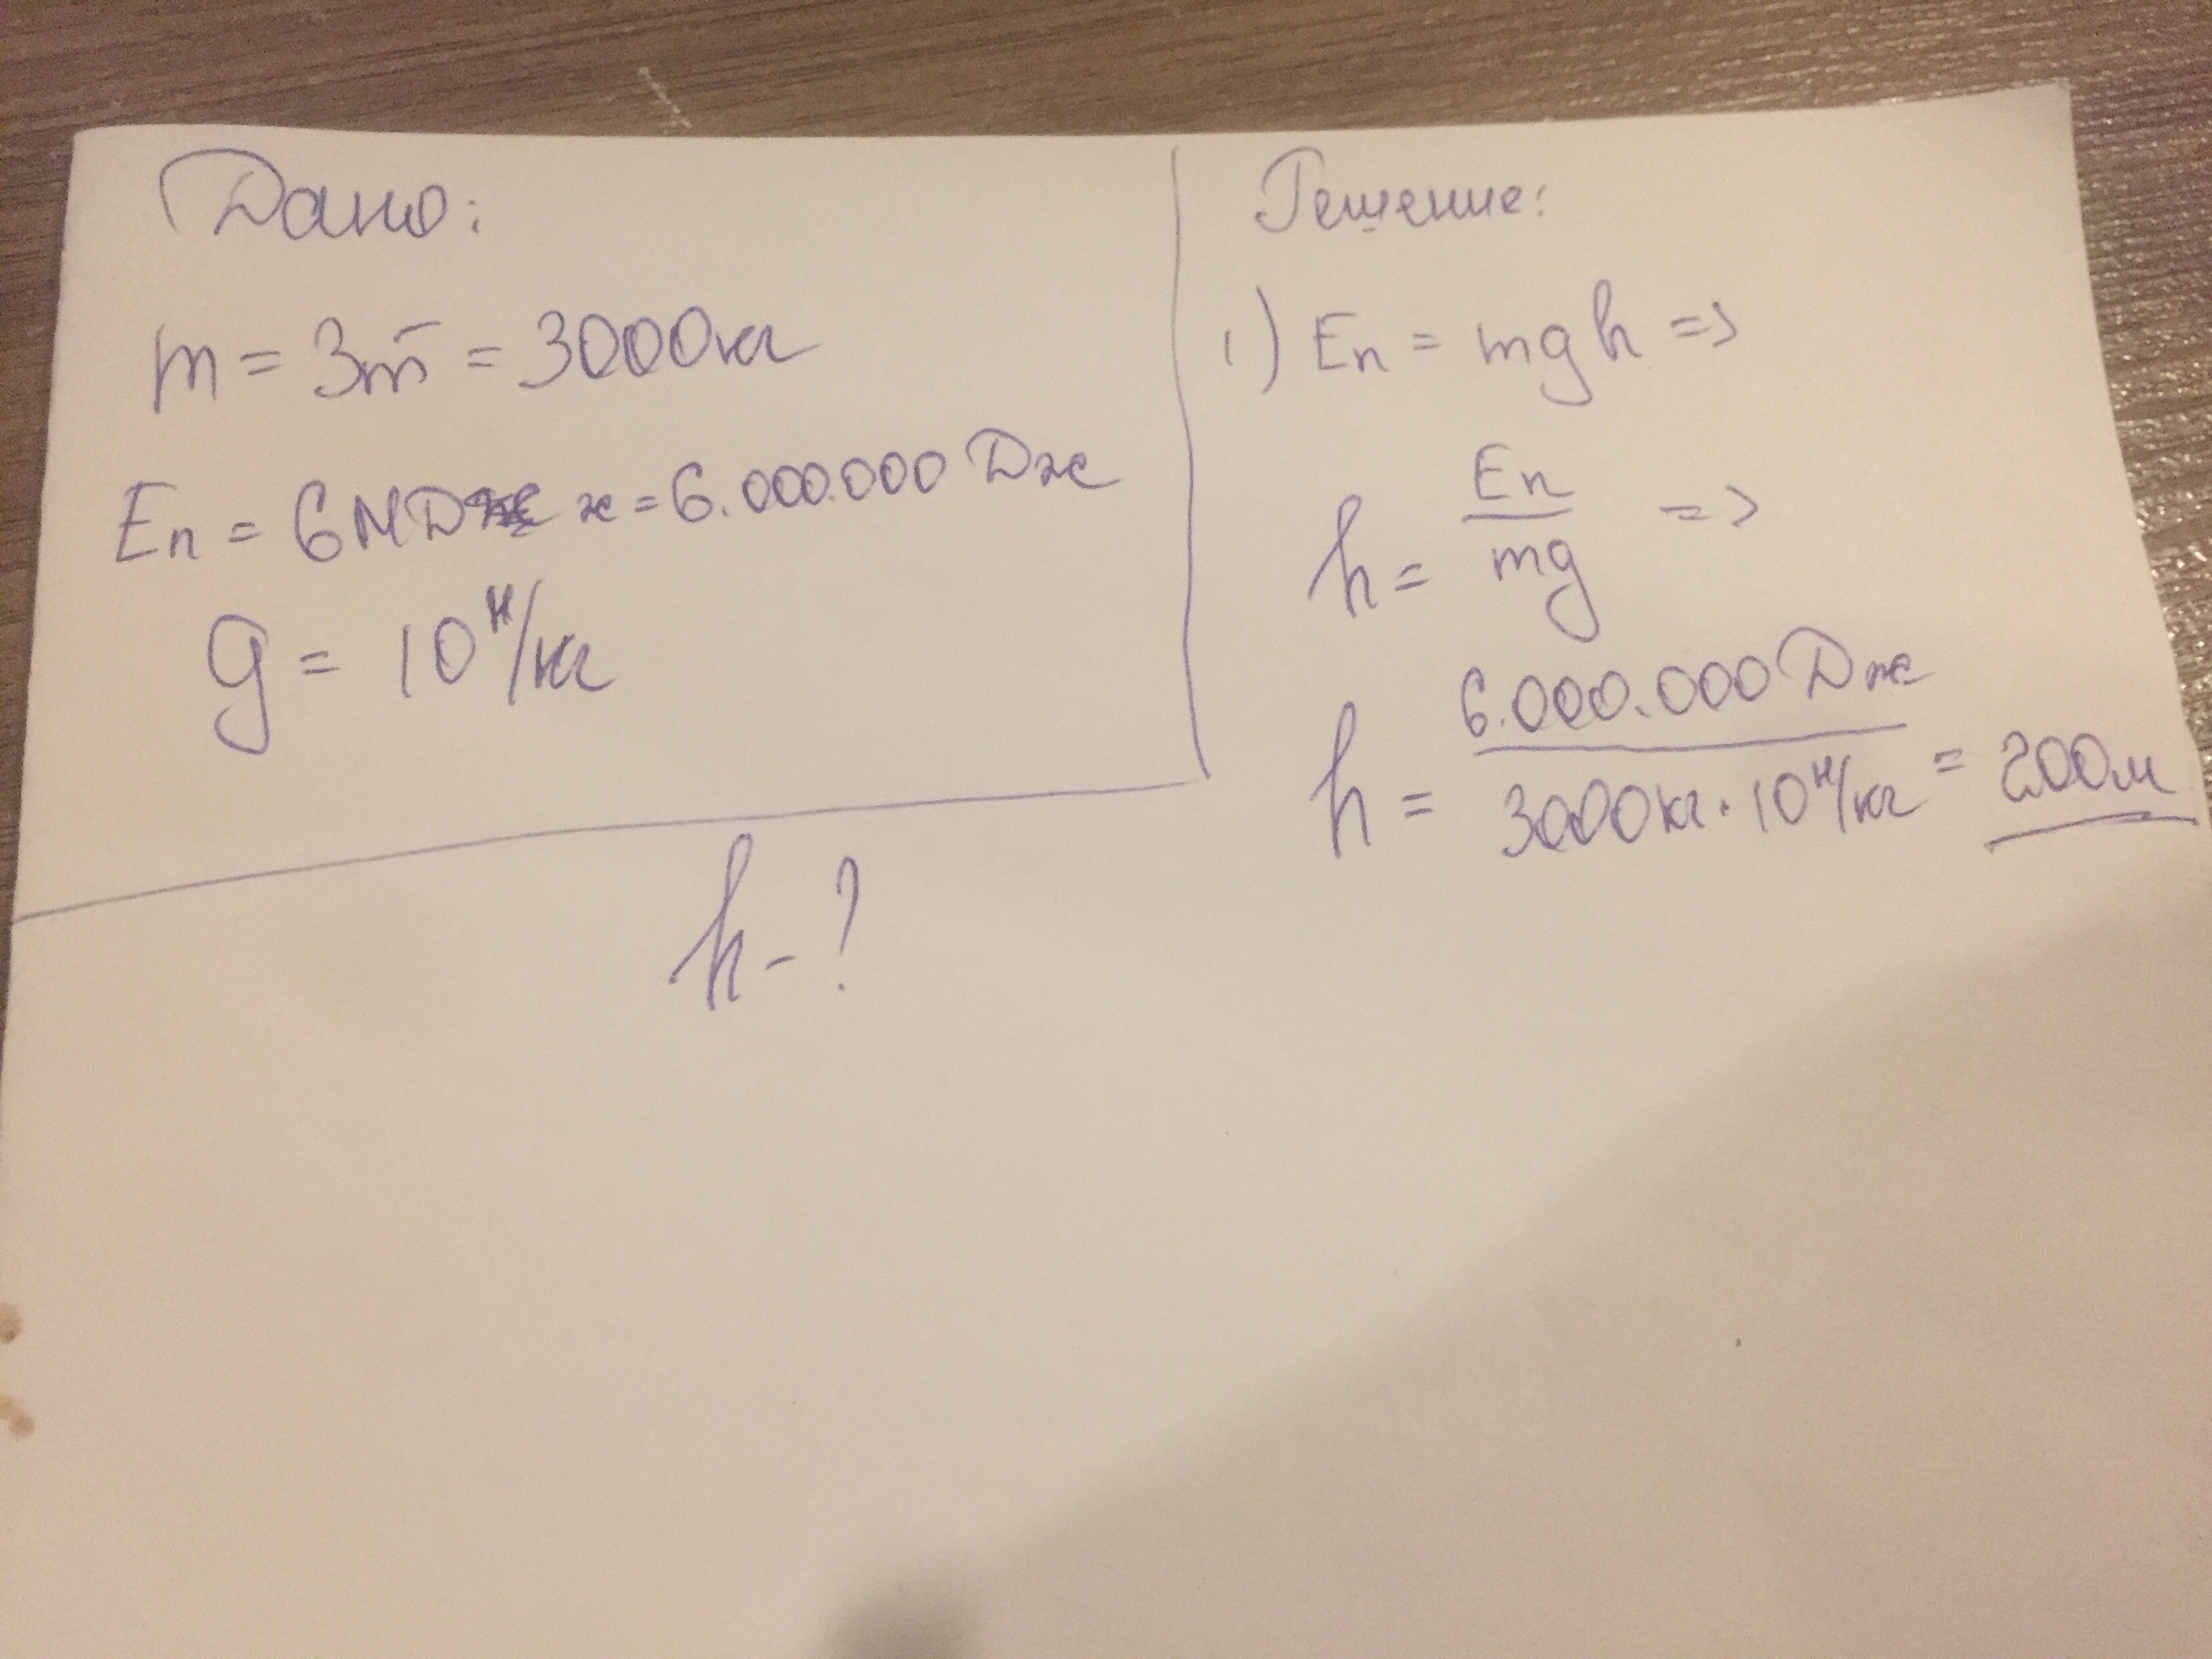 Дано:
m = 3т = 3000кг
Eп = 6МДж = 6.000.000 Дж
g = 10 Н/кг
h - ?
Решение:
1) Eп = mgh =>
h = Eп / mg =>
h = 6.000.000 Дж / 3000кг · 10 Н/кг = 200м